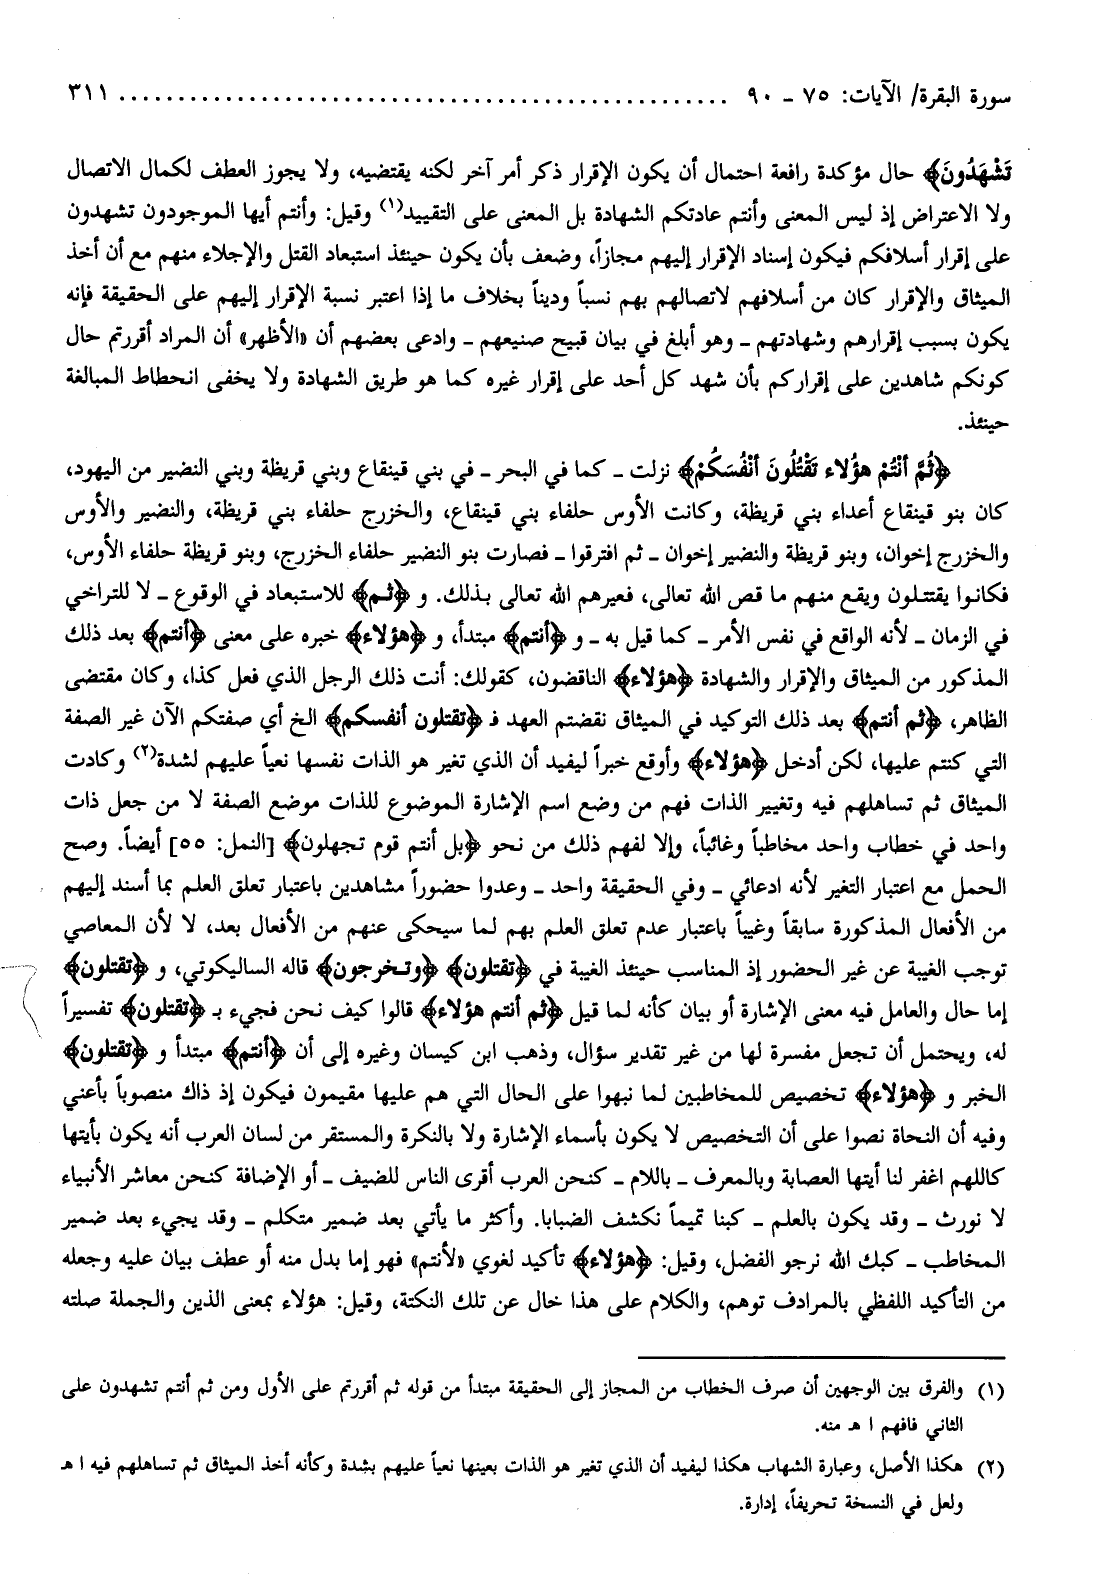 سورة البقرة/ الآيات: ٧٥ ـ ٩٠ ................................................ ٣١١
تَشْهَدُونَ﴾ حال مؤكدة رافعة احتمال أن يكون الإقرار ذكر أمر آخر لكنه يقتضيه، ولا يجوز العطف لكمال الاتصال
ولا الاعتراض إذ ليس المعنى وأنتم عادتكم الشهادة بل المعنى على التقييد(١) وقيل: وأنتم أيها الموجودون تشهدون
على إقرار أسلافكم فيكون إسناد الإقرار إليهم مجازاً، وضعف بأن يكون حينئذ استبعاد القتل والإجلاء منهم مع أن أخذ
الميثاق والإقرار كان من أسلافهم لاتصالهم بهم نسباً وديناً بخلاف ما إذا اعتبر نسبة الإقرار إليهم على الحقيقة فإنه
يكون بسبب إقرارهم وشهادتهم ـ وهو أبلغ في بيان قبيح صنيعهم ـ وادعى بعضهم أن «الأظهر» أن المراد أقررتم حال
كونكم شاهدين على إقراركم بأن شهد كل أحد على إقرار غيره كما هو طريق الشهادة ولا يخفى انحطاط المبالغة
حينئذ.
﴿ثُمَّ أَنْتُمْ هؤُلاء تَقْتُلُونَ أَنْفُسَكُمْ﴾ نزلت ـ كما في البحر ـ في بني قينقاع وبني قريظة وبني النضير من اليهود،
كان بنو قينقاع أعداء بني قريظة، وكانت الأوس حلفاء بني قينقاع، والخزرج حلفاء بني قريظة، والنضير والأوس
والخزرج إخوان، وبنو قريظة والنضير إخوان ـ ثم افترقوا ـ فصارت بنو النضير حلفاء الخزرج، وبنو قريظة حلفاء الأوس،
فكانوا يقتتلون ويقع منهم ما قص الله تعالى، فعيرهم الله تعالى بذلك. و ﴿ثم﴾ للاستبعاد في الوقوع ـ لا للتراخي
في الزمان ـ لأنه الواقع في نفس الأمر ـ كما قيل به ـ و ﴿أنتم﴾ مبتدأ، و ﴿هؤلاء﴾ خبره على معنى ﴿أنتم﴾ بعد ذلك
المذكور من الميثاق والإقرار والشهادة ﴿هؤلاء﴾ الناقضون، كقولك: أنت ذلك الرجل الذي فعل كذا، وكان مقتضى
الظاهر، ﴿ثم أنتم﴾ بعد ذلك التوكيد في الميثاق نقضتم العهد فـ ﴿تقتلون أنفسكم﴾ الخ أي صفتكم الآن غير الصفة
التي كنتم عليها، لكن أدخل ﴿هؤلاء﴾ وأوقع خبراً ليفيد أن الذي تغير هو الذات نفسها نعياً عليهم لشدة(٢) وكادت
الميثاق ثم تساهلهم فيه وتغيير الذات فهم من وضع اسم الإشارة الموضوع للذات موضع الصفة لا من جعل ذات
واحد في خطاب واحد مخاطباً وغائباً، وإلا لفهم ذلك من نحو ﴿بل أنتم قوم تجهلون﴾ [النمل: ٥٥] أيضاً. وصح
الحمل مع اعتبار التغير لأنه ادعائي ـ وفي الحقيقة واحد ـ وعدوا حضوراً مشاهدين باعتبار تعلق العلم بما أسند إليهم
من الأفعال المذكورة سابقاً وغيباً باعتبار عدم تعلق العلم بهم لما سيحكى عنهم من الأفعال بعد، لا لأن المعاصي
توجب الغيبة عن غير الحضور إذ المناسب حينئذ الغيبة في ﴿تقتلون﴾ ﴿وتخرجون﴾ قاله الساليكوتي، و ﴿تقتلون﴾
إما حال والعامل فيه معنى الإشارة أو بيان كأنه لما قيل ﴿ثم أنتم هؤلاء﴾ قالوا كيف نحن فجيء بـ ﴿تقتلون﴾ تفسيراً
له، ويحتمل أن تجعل مفسرة لها من غير تقدير سؤال، وذهب ابن كيسان وغيره إلى أن ﴿أنتم﴾ مبتدأ و ﴿تقتلون﴾
الخبر و ﴿هؤلاء﴾ تخصيص للمخاطبين لما نبهوا على الحال التي هم عليها مقيمون فيكون إذ ذاك منصوباً بأعني
وفيه أن النحاة نصوا على أن التخصيص لا يكون بأسماء الإشارة ولا بالنكرة والمستقر من لسان العرب أنه يكون بأيتها
كاللهم اغفر لنا أيتها العصابة وبالمعرف ـ باللام ـ كنحن العرب أقرى الناس للضيف ـ أو الإضافة كنحن معاشر الأنبياء
لا نورث ـ وقد يكون بالعلم ـ كبنا تميماً نكشف الضبابا. وأكثر ما يأتي بعد ضمير متكلم ـ وقد يجيء بعد ضمير
المخاطب ـ كبك الله نرجو الفضل، وقيل: ﴿هؤلاء﴾ تأكيد لغوي «لأنتم» فهو إما بدل منه أو عطف بيان عليه وجعله
من التأكيد اللفظي بالمرادف توهم، والكلام على هذا خال عن تلك النكتة، وقيل: هؤلاء بمعنى الذين والجملة صلته
(١) والفرق بين الوجهين أن صرف الخطاب من المجاز إلى الحقيقة مبتدأ من قوله ثم أقررتم على الأول ومن ثم أنتم تشهدون على
الثاني فافهم ا هـ منه.
(٢) هكذا الأصل، وعبارة الشهاب هكذا ليفيد أن الذي تغير هو الذات بعينها نعياً عليهم بشدة وكأنه أخذ الميثاق ثم تساهلهم فيه ا هـ
ولعل في النسخة تحريفاً، إدارة.